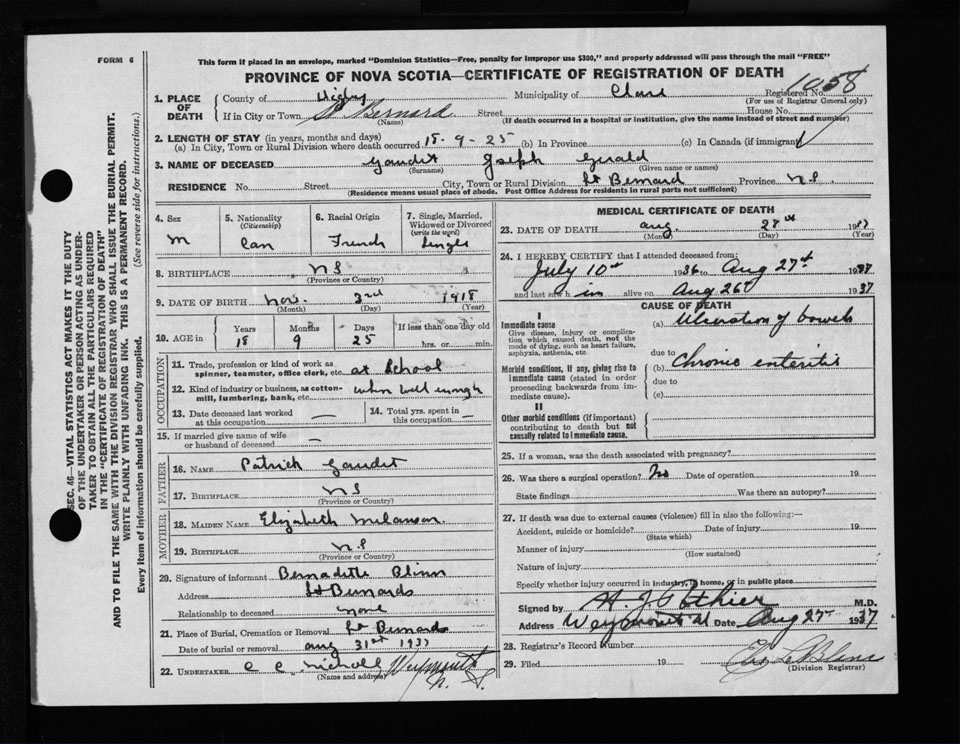 FORM 6
This form if placed in an envelope, marked "Dominion Statistics—Free, penalty for improper use $300," and properly addressed will pass through the mail "FREE"
PROVINCE OF NOVA SCOTIA—CERTIFICATE OF REGISTRATION OF DEATH
1058
1. PLACE OF DEATH { County of Digby Municipality of Clare Registered No.
(For use of Registrar General only)
If in City or Town St Bernard Street House No.
(Name) (If death occurred in a hospital or institution, give the name instead of street and number)
2. LENGTH OF STAY (in years, months and days)
(a) In City, Town or Rural Division where death occurred 18-9-25 (b) In Province (c) In Canada (if immigrant)
3. NAME OF DECEASED Gaudet Joseph Gerald
(Surname) (Given name or names)
RESIDENCE No. Street City, Town or Rural Division St Bernard Province N.S.
(Residence means usual place of abode. Post Office Address for residents in rural parts not sufficient)
4. Sex
M
5. Nationality
(Citizenship)
Can
6. Racial Origin
French
7. Single, Married, Widowed or Divorced
(write the word)
Single
8. BIRTHPLACE NS
(Province or Country)
9. DATE OF BIRTH Nov. 3rd 1918
(Month) (Day) (Year)
10. AGE in { Years Months Days If less than one day old
18 9 25 hrs. or min.
OCCUPATION
11. Trade, profession or kind of work as spinner, teamster, office clerk, etc. at School
12. Kind of industry or business, as cotton-mill, lumbering, bank, etc. when well enough
13. Date deceased last worked at this occupation —
14. Total yrs. spent in this occupation —
15. If married give name of wife or husband of deceased —
FATHER
16. NAME Patrick Gaudet
17. BIRTHPLACE NS
(Province or Country)
MOTHER
18. MAIDEN NAME Elizabeth Melanson
19. BIRTHPLACE N.S
(Province or Country)
20. Signature of informant Bernadette Blinn
Address St Bernards
Relationship to deceased none
21. Place of Burial, Cremation or Removal St Bernards
Date of burial or removal Aug 31st 1937
22. UNDERTAKER C C Nicholl Weymouth N.S.
(Name and address)
MEDICAL CERTIFICATE OF DEATH
23. DATE OF DEATH Aug. 28th 1937
(Month) (Day) (Year)
24. I HEREBY CERTIFY that I attended deceased from:
July 10th 1936 to Aug 27th 1937
and last saw him alive on Aug 26th 1937
CAUSE OF DEATH
I
Immediate cause
Give disease, injury or complication which caused death, not the mode of dying, such as heart failure, asphyxia, asthenia, etc.
(a) Ulceration of bowels
due to
Morbid conditions, if any, giving rise to immediate cause (stated in order proceeding backwards from immediate cause).
(b) Chronic enteritis
due to
(c)
II
Other morbid conditions (if important) contributing to death but not causally related to immediate cause.
25. If a woman, was the death associated with pregnancy?
26. Was there a surgical operation? No Date of operation 19
State findings Was there an autopsy?
27. If death was due to external causes (violence) fill in also the following:—
Accident, suicide or homicide? Date of injury 19
(State which)
Manner of injury
(How sustained)
Nature of injury
Specify whether injury occurred in industry, in home, or in public place
Signed by A. J. Pothier M.D.
Address Weymouth Date Aug 27th 1937
28. Registrar's Record Number
29. Filed 19 LeBlanc
(Division Registrar)
SEC. 46—VITAL STATISTICS ACT MAKES IT THE DUTY
OF THE UNDERTAKER OR PERSON ACTING AS UNDER-
TAKER TO OBTAIN ALL THE PARTICULARS REQUIRED
IN THE "CERTIFICATE OF REGISTRATION OF DEATH"
AND TO FILE THE SAME WITH THE DIVISION REGISTRAR WHO SHALL ISSUE THE BURIAL PERMIT.
WRITE PLAINLY WITH UNFADING INK. THIS IS A PERMANENT RECORD.
Every item of information should be carefully supplied. (See reverse side for instructions.)